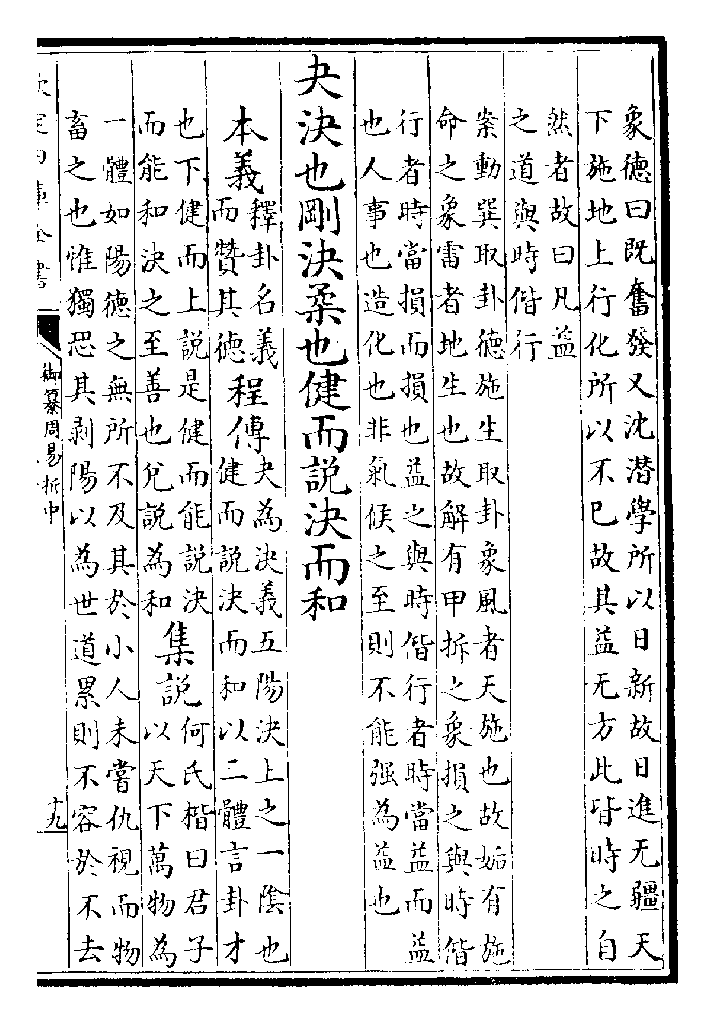 象德曰既奮發又沈潛學所以日新故日進无疆天
下施地上行化所以不已故其益无方此皆時之自
然者故曰凡益
之道與時偕行
案動巽取卦德施生取卦象風者天施也故姤有施
命之象雷者地生也故解有甲拆之象損之與時偕
行者時當損而損也益之與時偕行者時當益而益
也人事也造化也非氣候之至則不能强為益也
夬決也剛決柔也健而說決而和
本義
釋卦名義
而贊其德
程傳
夬為決義五陽決上之一陰也
健而說決而和以二體言卦才
也下健而上說是健而能說決
而能和決之至善也兌說為和
集說
何氏楷曰君子
以天下萬物為
一體如陽德之無所不及其於小人未嘗仇視而物
畜之也惟獨恐其剥陽以為世道累則不容於不去
欽定四庫全書
御纂周易折中
十九